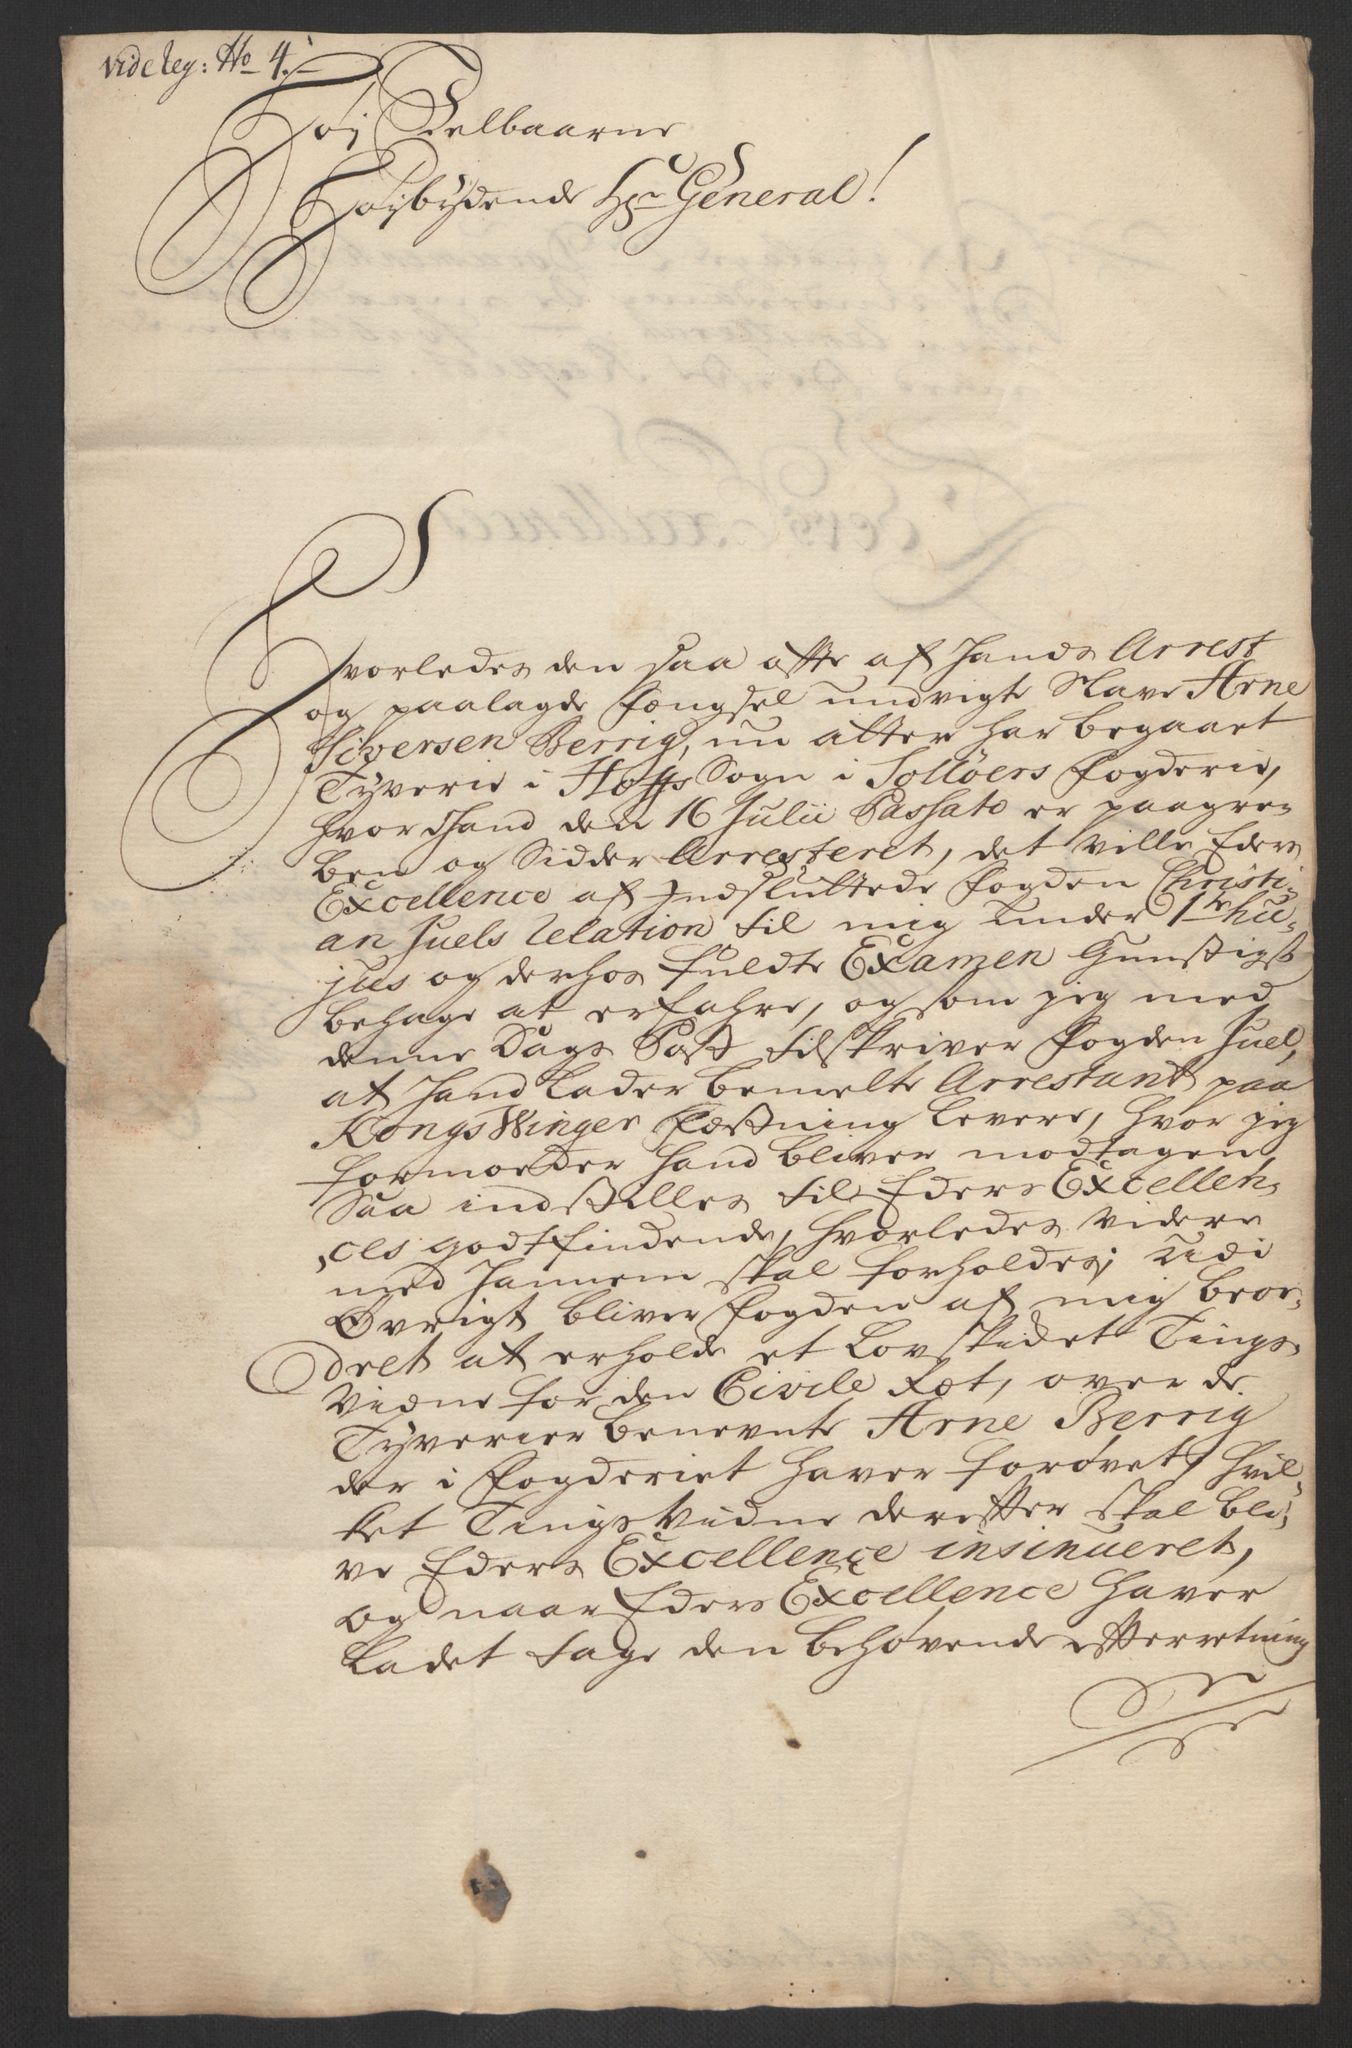 vide reg: No 4.
Høj Edelbaarne
Høijbydende Hr General!
Hvorledes den saa offte af hands Arrest
og paalagde fængsel undvigte Slave Arne
Siversen Berrig, nu atter har begaaet
Tyverie i Hoffs Sogn i Solløers fogderie,
hvor hand den 16 Julii Passato er paagre-
ben og Sidder Arresteret, det ville Eders
Excellence af Indsluttede fogden Christi-
an Juels Relation til mig under 1te hu-
jus og derhos fuldte Examen Gunstigst
behage at erfahre, og som jeg med
denne Dags Post tilskriver fogden Juel,
at hand lader bemelte Arrestant paa
KongsWinger fæstning levere, hvor jeg
formoeder hand bliver modtagen
Saa indstilles til Eders Excellen-
ces godtfindende, hvorledes videre
med hannem skal forholdes; udi
Øvrigt bliver fogden af mig beor-
dret at erholde et Lovskikket Tings-
vidne for den Civile Ræt, over de
Tyverier benevnte Arne Berrig
der i fogderiet haver forøvet, hvil-
ket Tingsvidne derefter skal bli-
ve Eders Excellence insinueret,
og naar Eders Excellence haver
ladet tage den behøvende efterretning